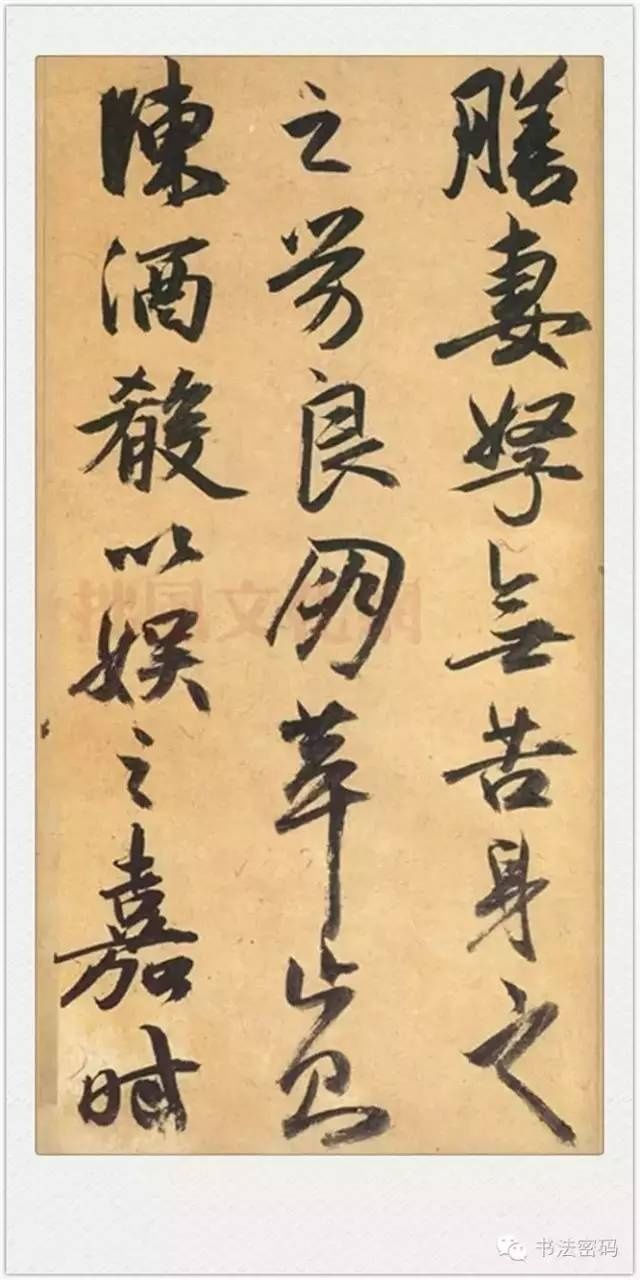 膳妻孥無苦身之
之劳良朋萃止則
陳酒殽以娱之嘉时
书法密码